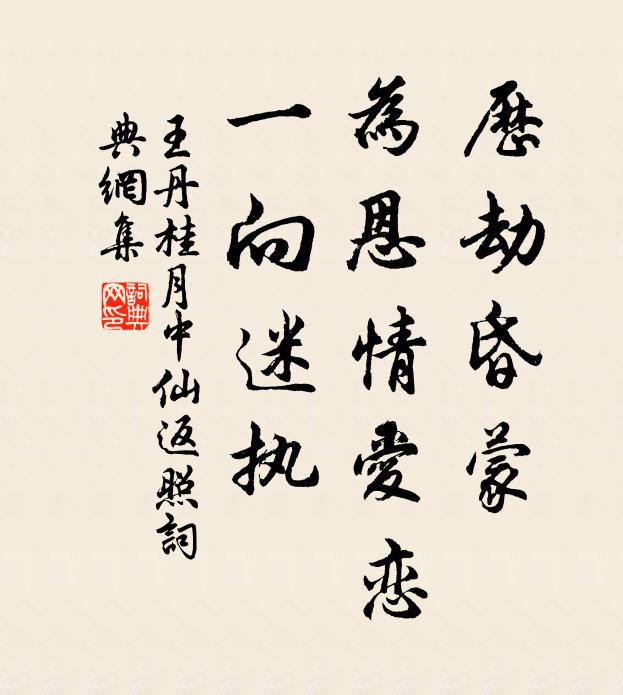 歷劫昏蒙
為恩情愛恋
一向迷执
王丹桂月中仙返照詞
典網集
詞典網印